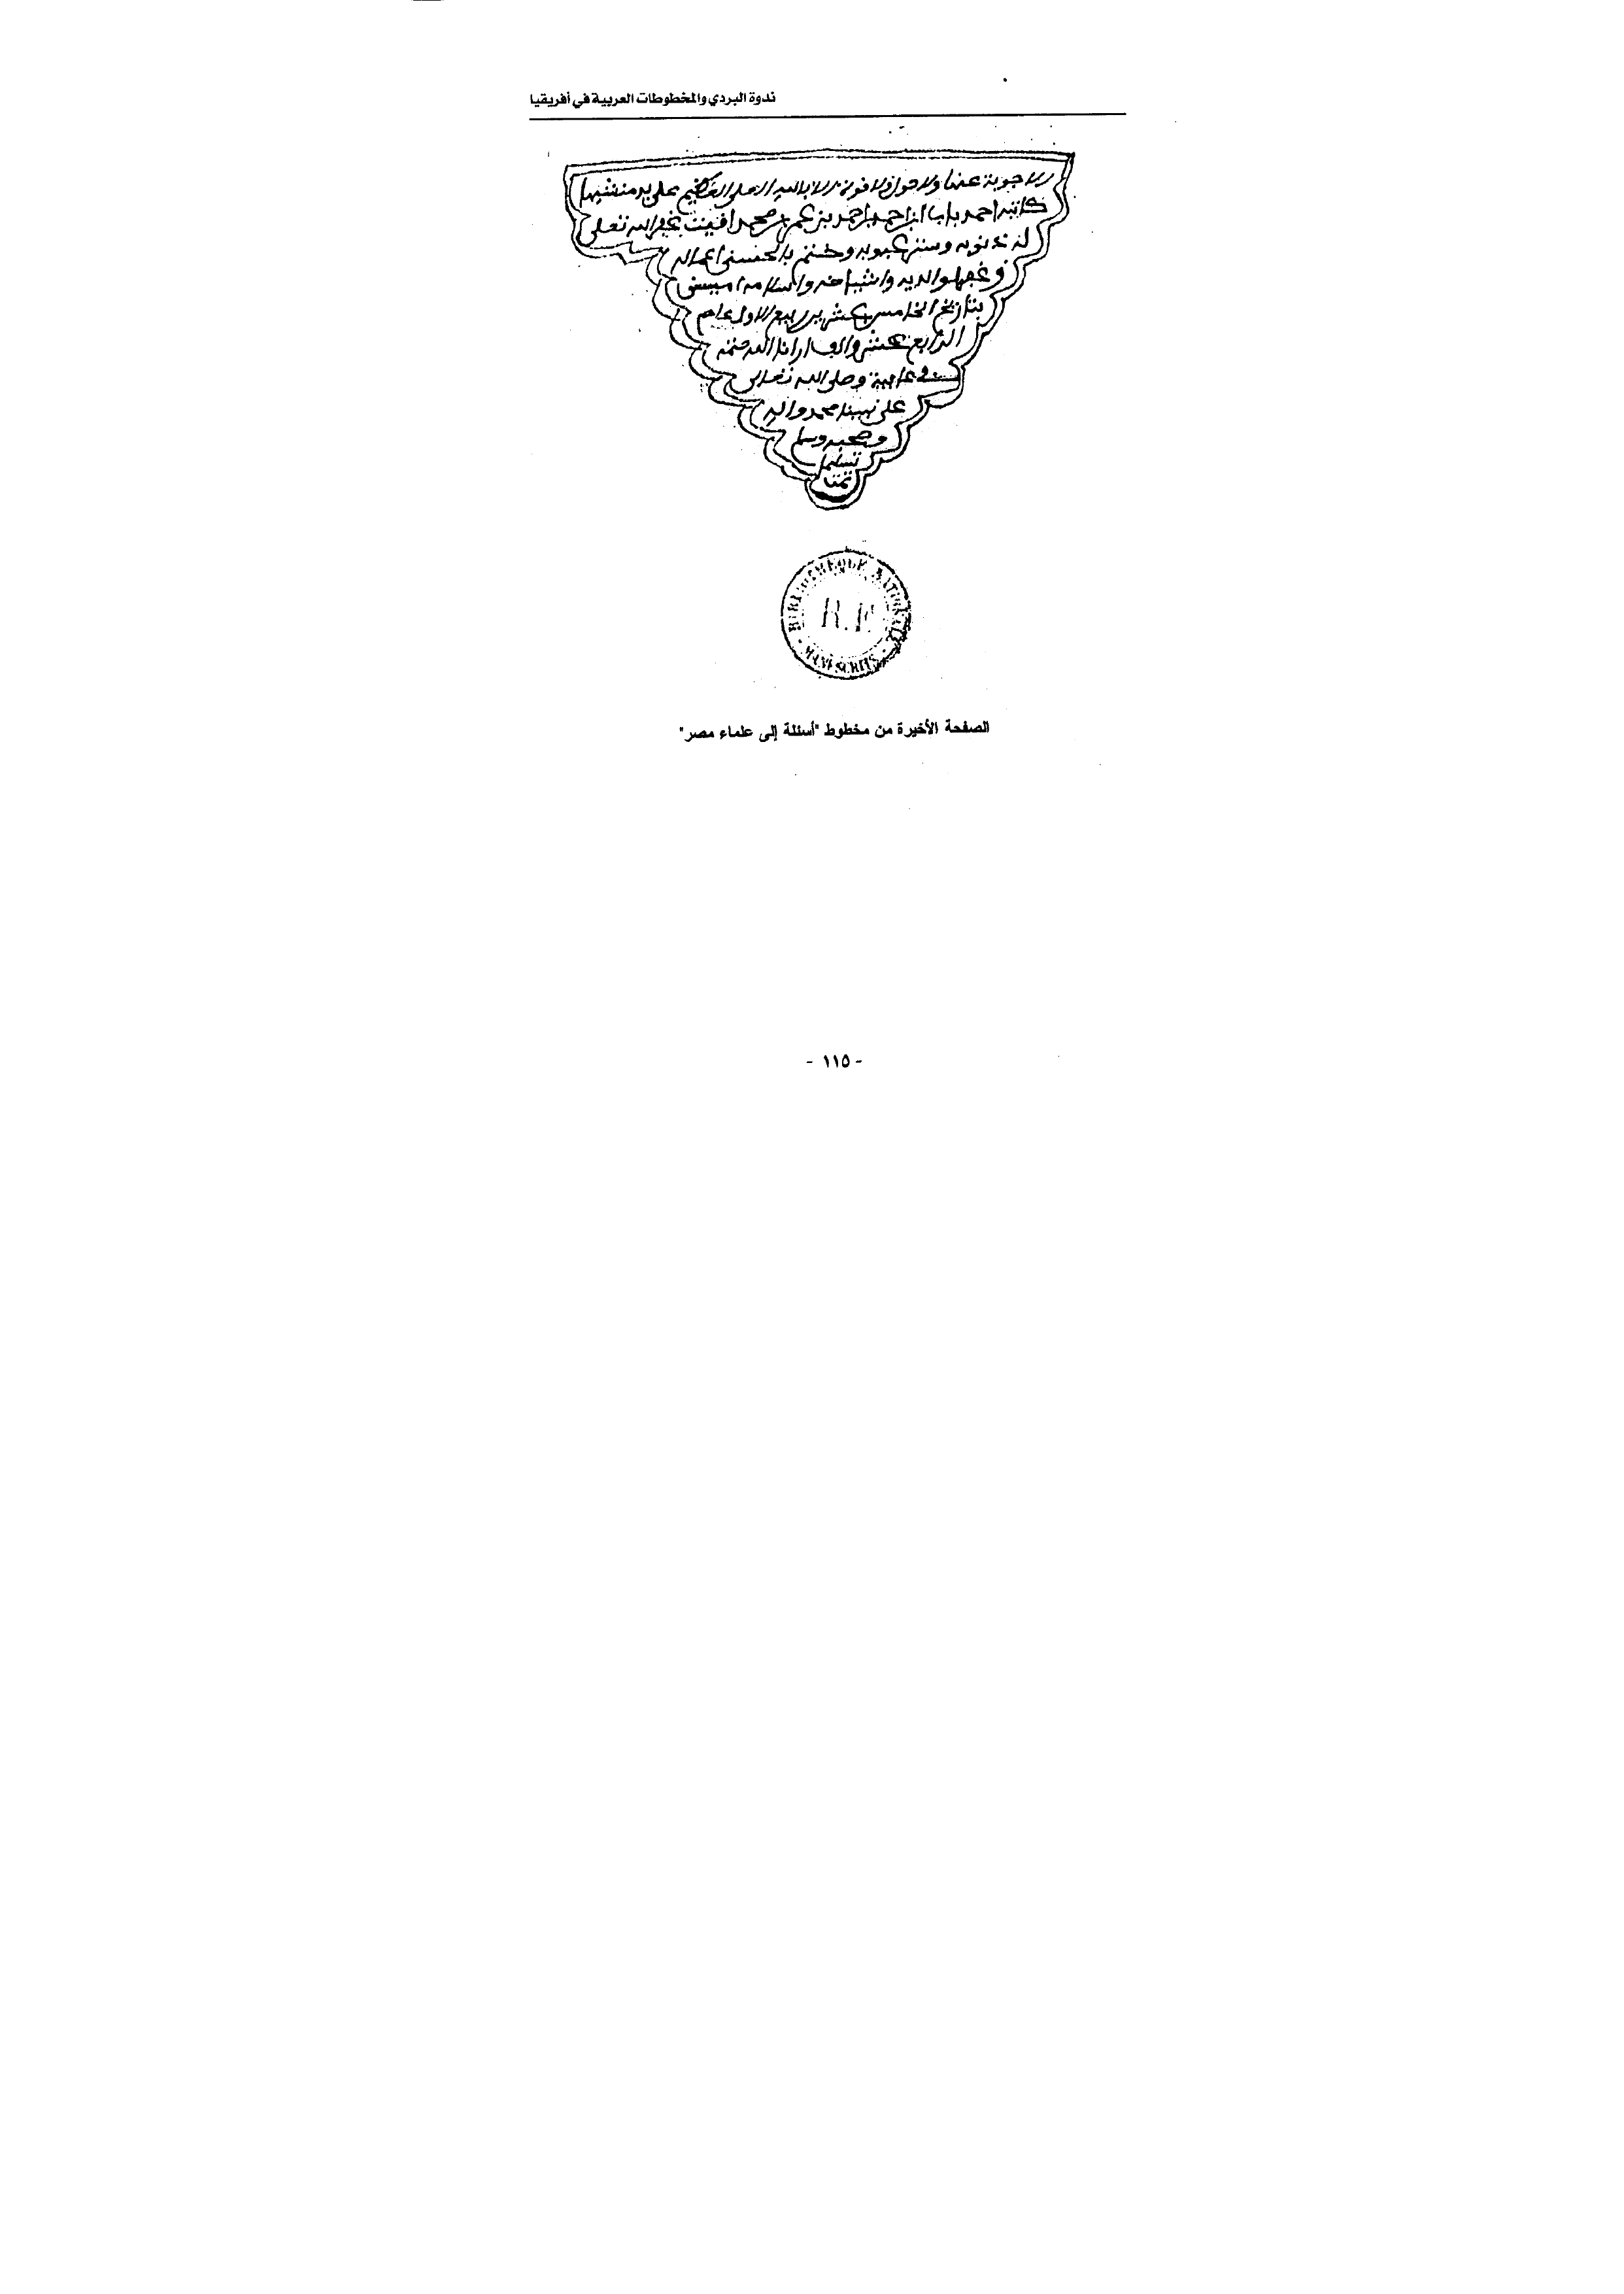 ندوة البردي والمخطوطات العربية في أفريقيا
الاجوبة عنها ولا حول ولا قوة الا بالله العلي العظيم على يد منشيها
كاتبه احمد باب ابن احمد بن احمد بن عمر بن محمد اقيت غفر الله تعلى
له ذنوبه وستر عيوبه وختم بالحسنى اعماله
وغفر لوالديه واشياخه والسلام امين
بتاريخ الخامس عشر ربيع الاول عام
الرابع عشر والف ارانا الله ختمه
في عافية وصلى الله تعالى
على نبينا محمد واله
وصحبه وسلم
تسليما
تمت
BIBLIOTHEQUE NATIONALE
R.F.
MANUSCRITS
الصفحة الأخيرة من مخطوط "أسئلة إلى علماء مصر"
- ١١٥ -